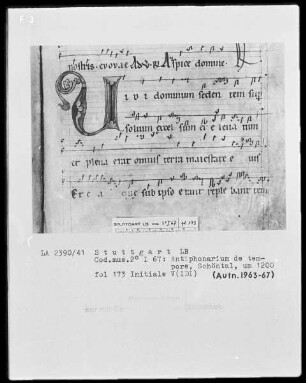 nostris. evovae Aspice domine.
V idi dominum sedentem sup
solium excelsum et
et plena erat omnis terra maiestate e ius
Et ea que sub ipso erant replebant tem
LA 2390/41 Stuttgart LB
Cod.mus.2° I 67: Antiphonarium de tem-
pore, Schöntal, um 1200
fol 173 Initiale V(IDI) (Aufn.1963-67)